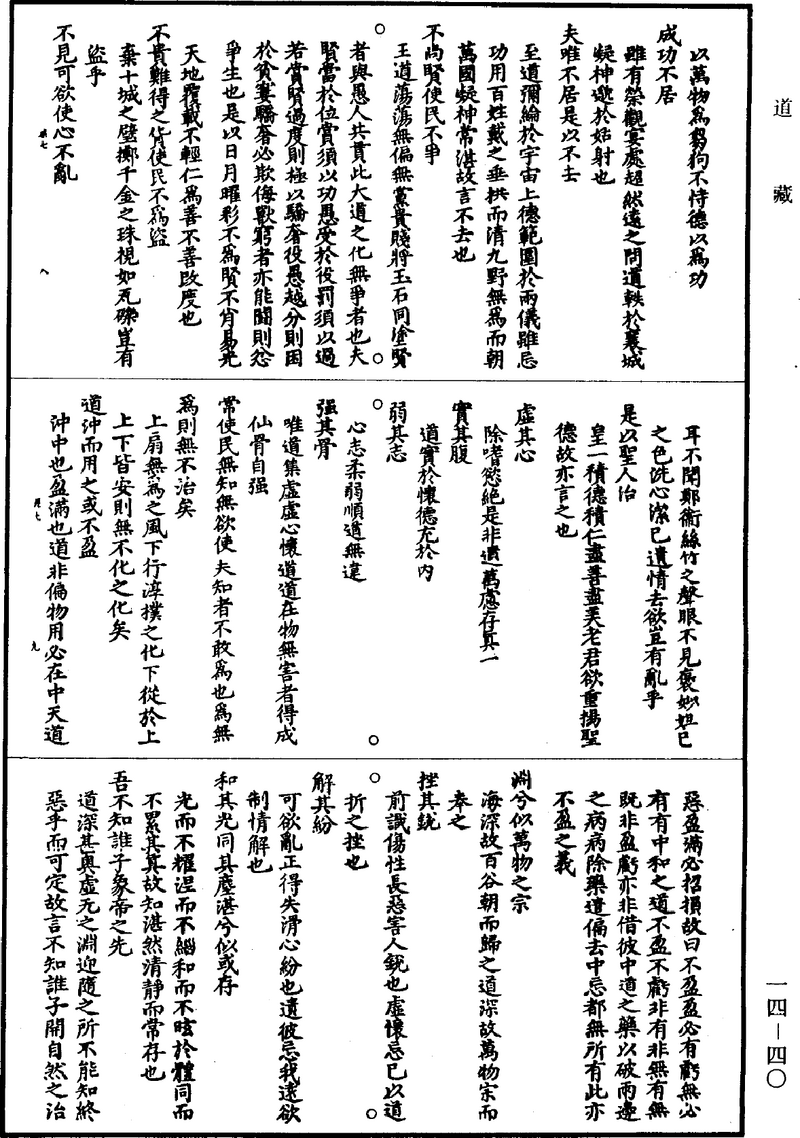 道藏
以萬物爲芻狗不恃德以爲功
成功不居
雖有榮觀宴處超然遠之問道軼於襄城
凝神邈於姑射也
夫唯不居是以不去
至道彌綸於宇宙上德範圍於兩儀雖忘
功用百姓戴之垂拱而清九野無爲而朝
萬國凝神常湛故言不去也
不尚賢使民不爭
王道蕩蕩無偏無黨貴賤將玉石同塗賢
者與愚人共貫此大道之化無爭者也夫
賢當於位賞須以功愚受於役罰須以過
若賞賢過度則極以驕奢役愚越分則困
於貧窶驕奢必欺侮獸窮者亦能鬪則忿
爭生也是以日月曜彩不爲賢不肖易光
天地覆載不輕仁爲善不善改度也
不貴難得之貨使民不爲盜
棄十城之璧擲千金之珠視如瓦礫豈有
盜乎
不見可欲使心不亂
耳不聞鄭衛絲竹之聲眼不見褒妙妲己
之色洗心潔己遺情去欲豈有亂乎
是以聖人治
皇一積德積仁盡善盡美老君欲重揚聖
德故亦言之也
虛其心
除嗜慾絕是非遺萬慮存眞一
實其腹
道實於懷德充於內
弱其志
心志柔弱順道無違
强其骨
唯道集虛虛心懷道道在物無害者得成
仙骨自强
常使民無知無欲使夫知者不敢爲也爲無
爲則無不治矣
上扇無爲之風下行淳撲之化下從於上
上下皆安則無不化之化矣
道沖而用之或不盈
沖中也盈滿也道非偏物用必在中天道
惡盈滿必招損故曰不盈盈必有虧無必
有有中和之道不盈不虧非有非無有無
旣非盈虧亦非借彼中道之藥以破兩邊
之病病除藥遣偏去中忘都無所有此亦
不盈之義
淵兮似萬物之宗
海深故百谷朝而歸之道深故萬物宗而
奉之
挫其銳
前識傷性長惡害人銳也虛懷忘己以道
折之挫也
解其紛
可欲亂正得失滑心紛也遺彼忘我遠欲
制情解也
和其光同其塵湛兮似或存
光而不耀涅而不緇和而不昡於體同而
不累其眞故知湛然清靜而常存也
吾不知誰子象帝之先
道深其奧虛无之淵迎隨之所不能知終
惡乎而可定故言不知誰子開自然之治
一四－四〇